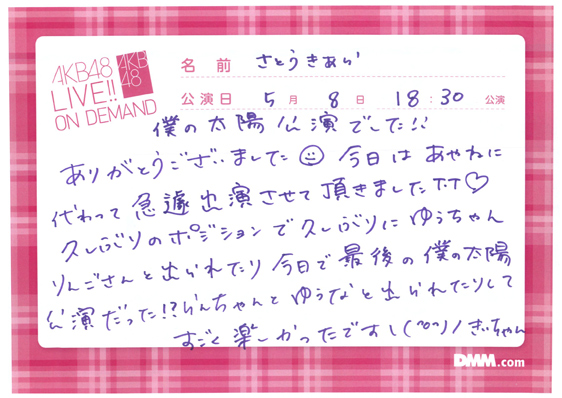 AKB48
LIVE!!
ON DEMAND
AKB
48
名前 さとうきあら
公演日 5月 8日 18:30 公演
僕の太陽公演でした!!
ありがとうございました☺ 今日は あやねに
代わって 急遽出演させて頂きましたTT♡
久しぶりのポジションで久しぶりに ゆうちゃん
りんごさんと出られたり 今日で最後の僕の太陽
公演だった!?らんちゃんと ゆうなと出られたりして
すごく楽しかったです
DMM.com